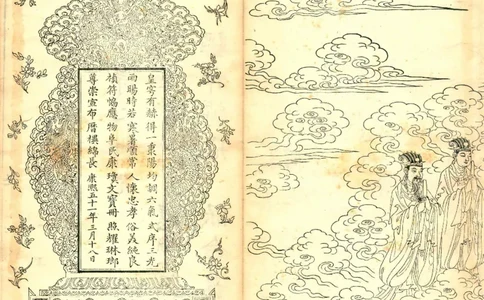 皇穹有赫得一乘陽均調六氣式序三光
雨暘時若寒暑常人懷忠孝俗美純良
禎符協應物阜民康瓊文寶冊照耀琳瑯
尊崇宣布曆祺綿長康熙五十一年三月十八日